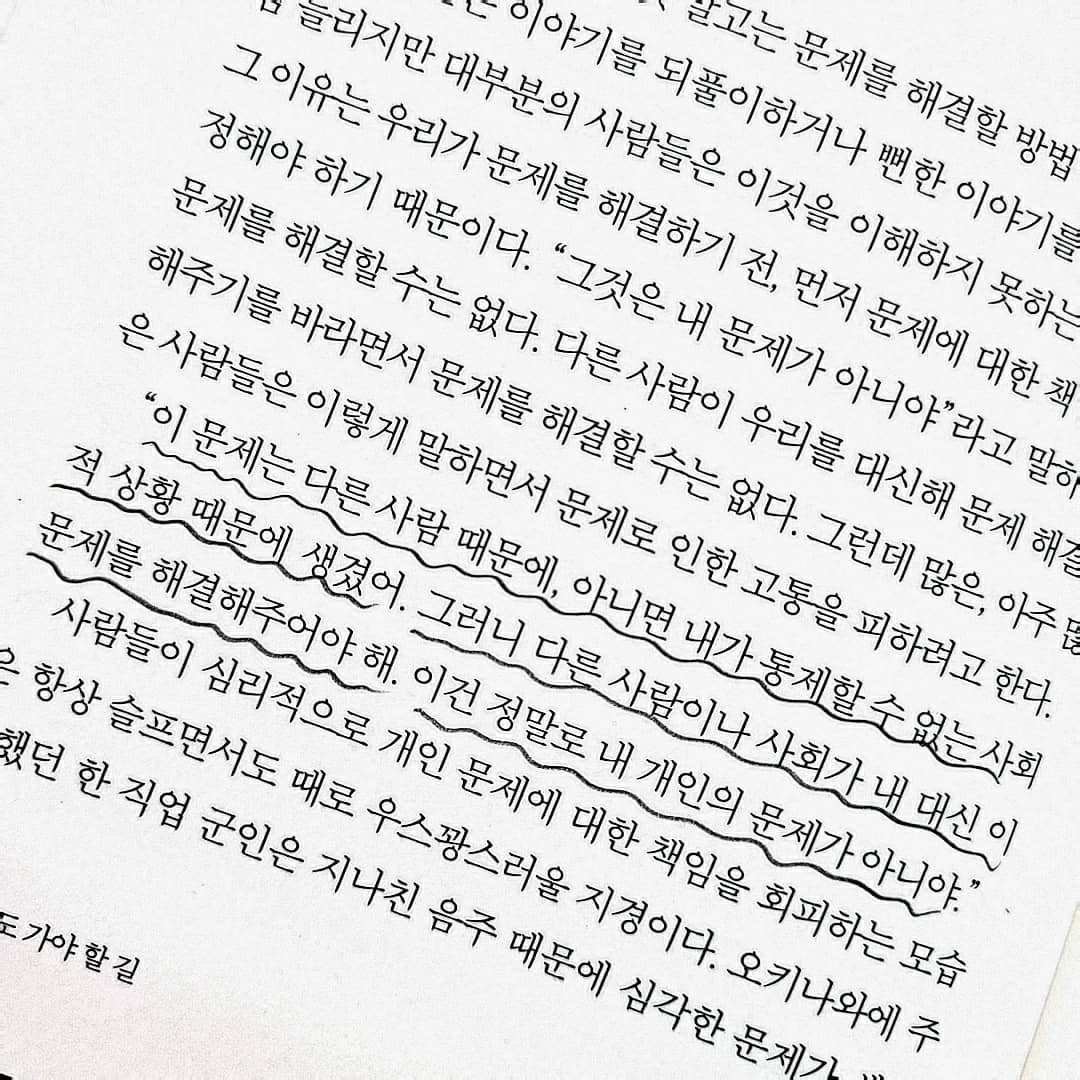 말고는 문제를 해결할 방법
이야기를 되풀이하거나 뻔한 이야기를
들리지만 대부분의 사람들은 이것을 이해하지 못하는
그 이유는 우리가 문제를 해결하기 전, 먼저 문제에 대한 책
정해야 하기 때문이다. “그것은 내 문제가 아니야”라고 말하
문제를 해결할 수는 없다. 다른 사람이 우리를 대신해 문제 해결
해주기를 바라면서 문제를 해결할 수는 없다. 그런데 많은, 아주 많
은 사람들은 이렇게 말하면서 문제로 인한 고통을 피하려고 한다.
“이 문제는 다른 사람 때문에, 아니면 내가 통제할 수 없는 사회
적 상황 때문에 생겼어. 그러니 다른 사람이나 사회가 내 대신 이
문제를 해결해주어야 해. 이건 정말로 내 개인의 문제가 아니야.”
사람들이 심리적으로 개인 문제에 대한 책임을 회피하는 모습
은 항상 슬프면서도 때로 우스꽝스러울 지경이다. 오키나와에 주
했던 한 직업 군인은 지나친 음주 때문에 심각한 문제가
도 가야 할 길